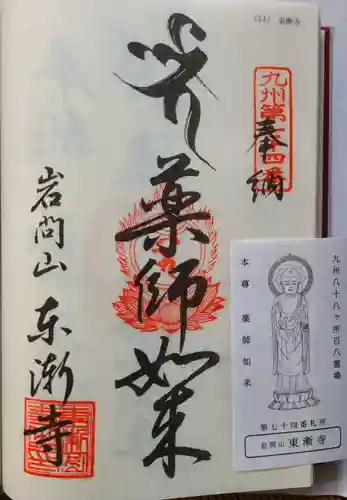 (74) 東漸寺
九州第七十四番
奉納
薬師如来
岩間山
東漸寺
九州八十八ヶ所百八霊場
本尊 薬師如来
第七十四番札所
岩間山 東漸寺